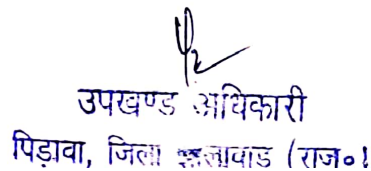 उपखण्ड अधिकारी
पिड़ावा, जिला झालावाड (राज०)